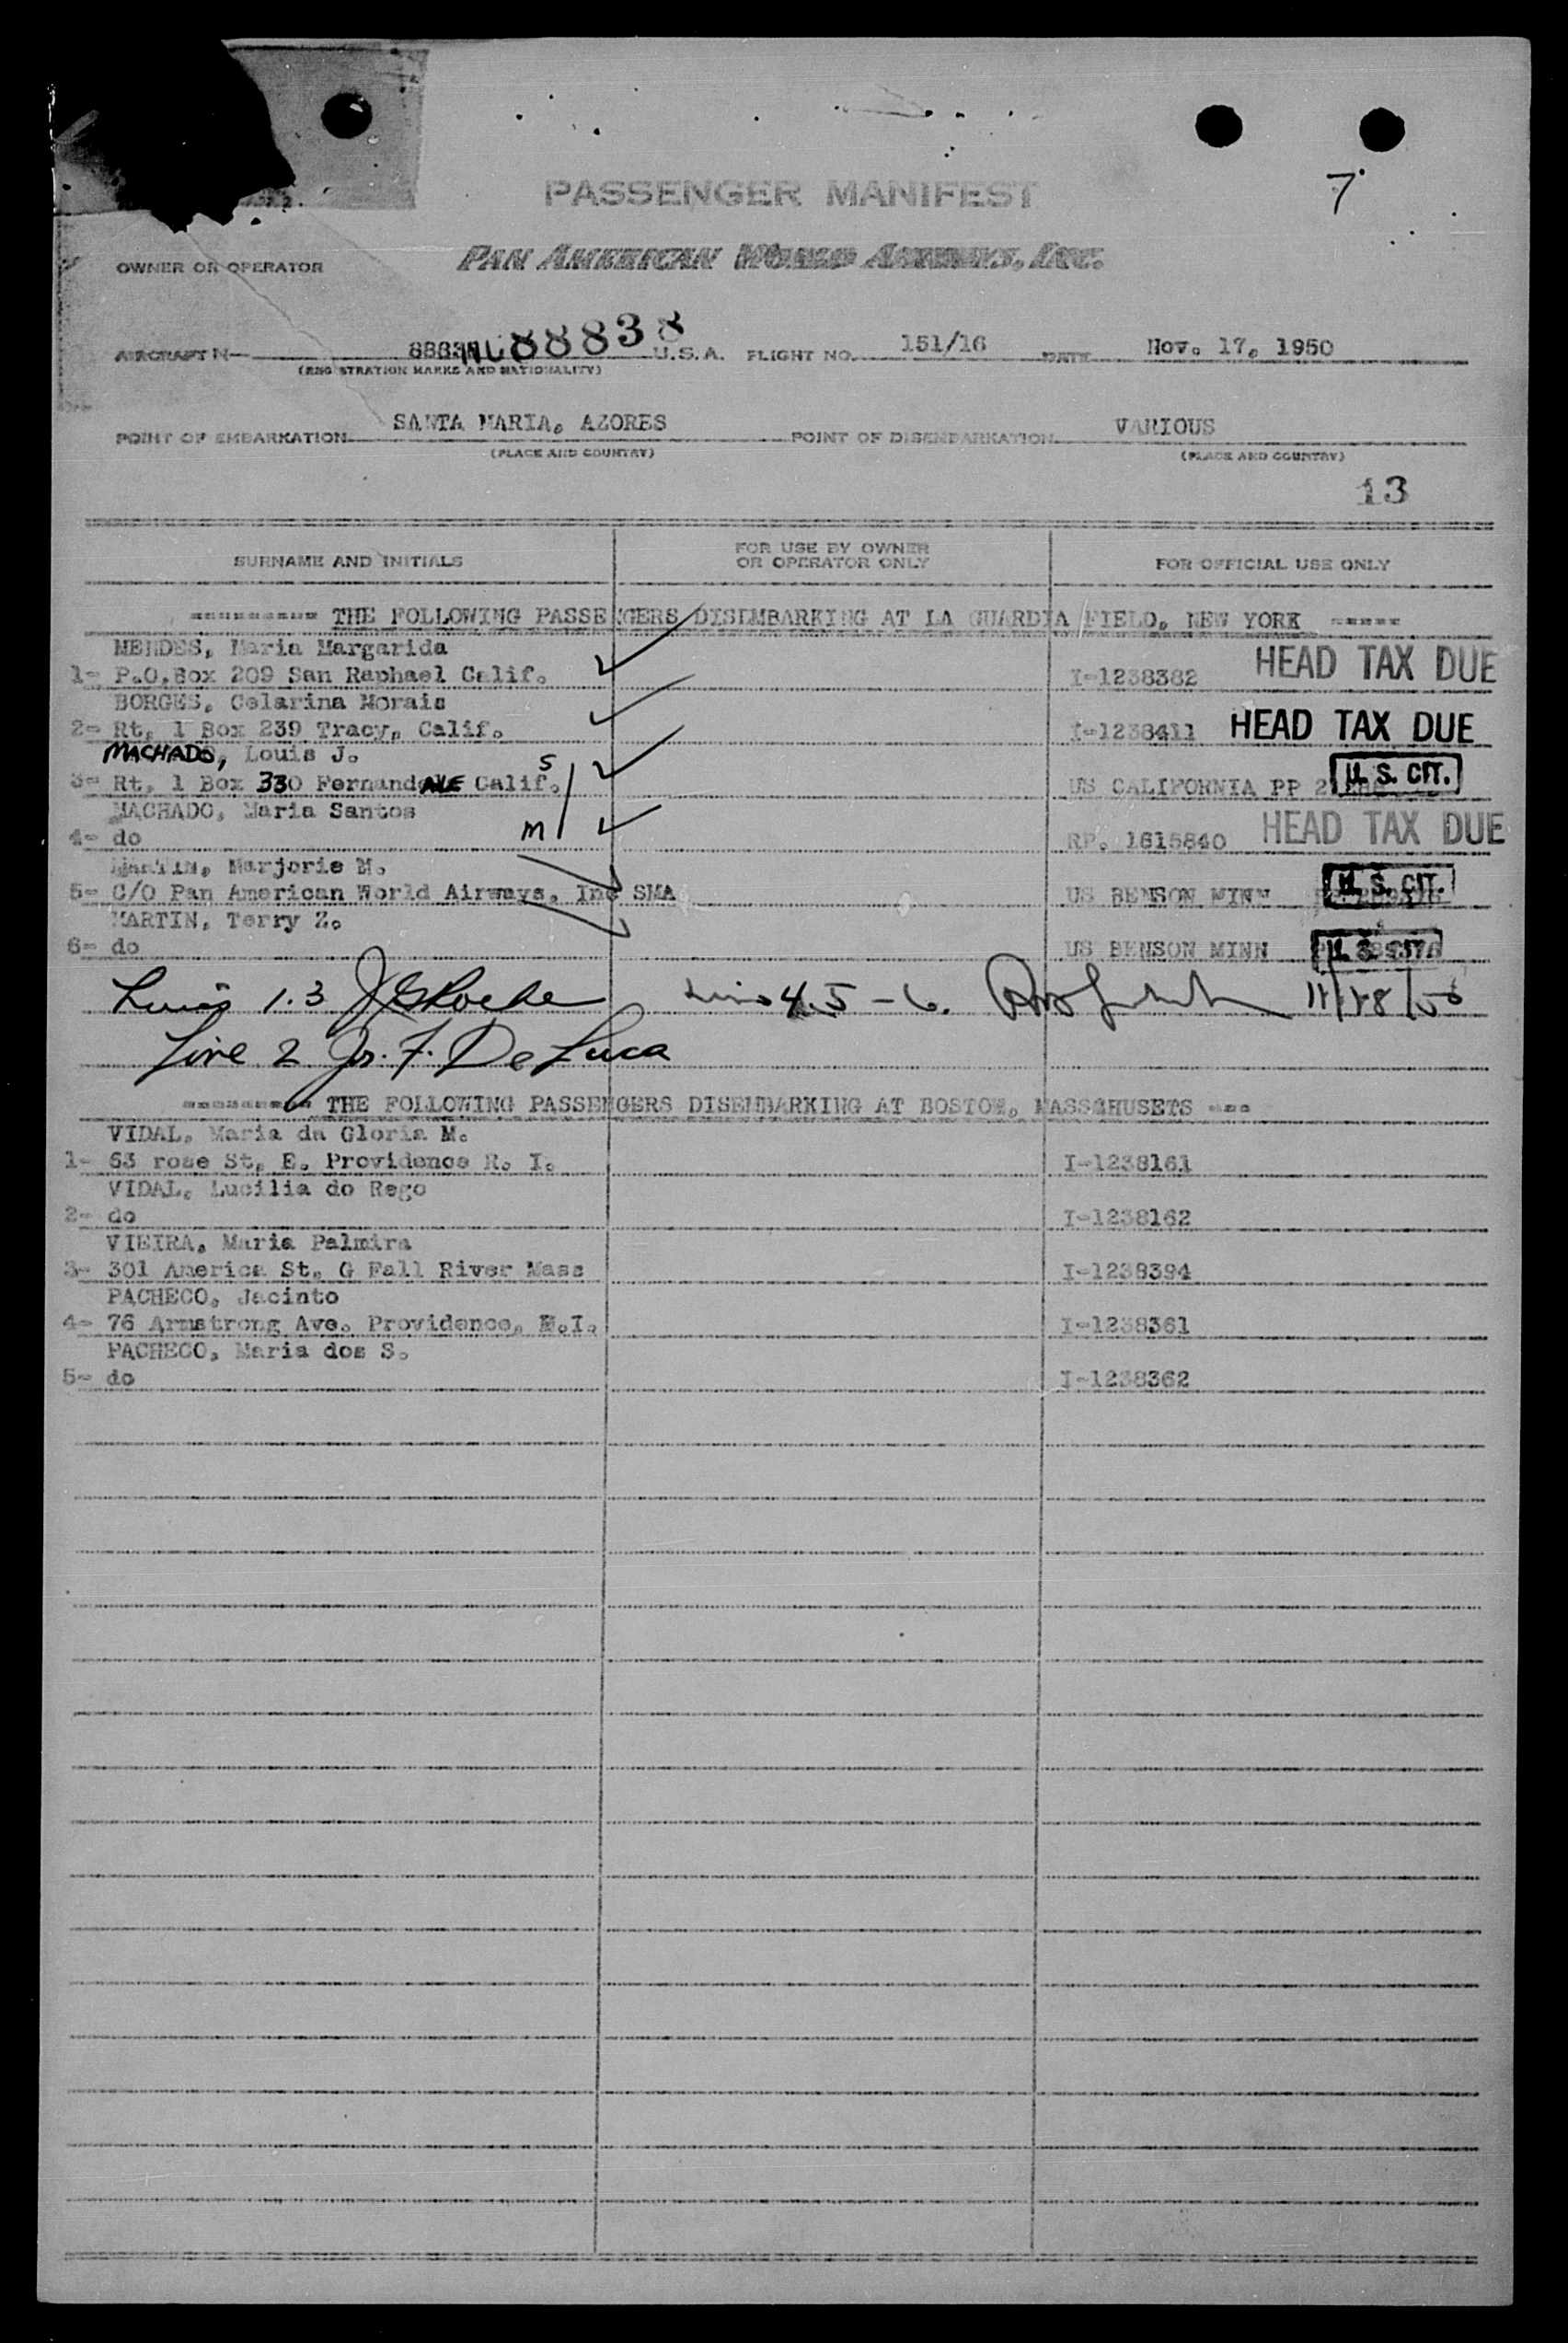 PASSENGER MANIFEST
7
OWNER OR OPERATOR PAN AMERICAN WORLD AIRWAYS, INC.
AIRCRAFT N— 88838 NC88838 U.S.A. FLIGHT NO. 151/16 DATE Nov. 17, 1950
(REGISTRATION MARKS AND NATIONALITY)
POINT OF EMBARKATION SANTA MARIA, AZORES POINT OF DISEMBARKATION VARIOUS
(PLACE AND COUNTRY) (PLACE AND COUNTRY)
13
SURNAME AND INITIALS FOR USE BY OWNER OR OPERATOR ONLY FOR OFFICIAL USE ONLY
--------- THE FOLLOWING PASSENGERS DISEMBARKING AT LA GUARDIA FIELD, NEW YORK -----
MENDES, Maria Margarida
1- P.O.Box 209 San Raphael Calif. I-1238382 HEAD TAX DUE
BORGES, Celarina Morais
2- Rt, 1 Box 239 Tracy, Calif. I-1238411 HEAD TAX DUE
MACHADO, Louis J. S
3- Rt, 1 Box 330 FernandALE Calif. US CALIFORNIA PP U. S. CIT.
MACHADO, Maria Santos
4- do M RP. 1615840 HEAD TAX DUE
MARTIN, Marjorie M.
5- C/O Pan American World Airways, Inc SMA US BENSON MINN U. S. CIT.
MARTIN, Terry Z.
6- do US BENSON MINN U. S. CIT.
Lines 1.3 Lines 4,5-6. 11/18/50
Line 2 Jos. F. De Luca
--------- THE FOLLOWING PASSENGERS DISEMBARKING AT BOSTON, MASSCHUSETS ---
VIDAL, Maria da Gloria M.
1- 63 rose St, E. Providence R. I. I-1238161
VIDAL, Lucilia do Rego
2- do I-1238162
VIEIRA, Maria Palmira
3- 301 America St, G Fall River Mass I-1238394
PACHECO, Jacinto
4- 76 Armstrong Ave. Providence, R.I. I-1238361
PACHECO, Maria dos S.
5- do I-1238362